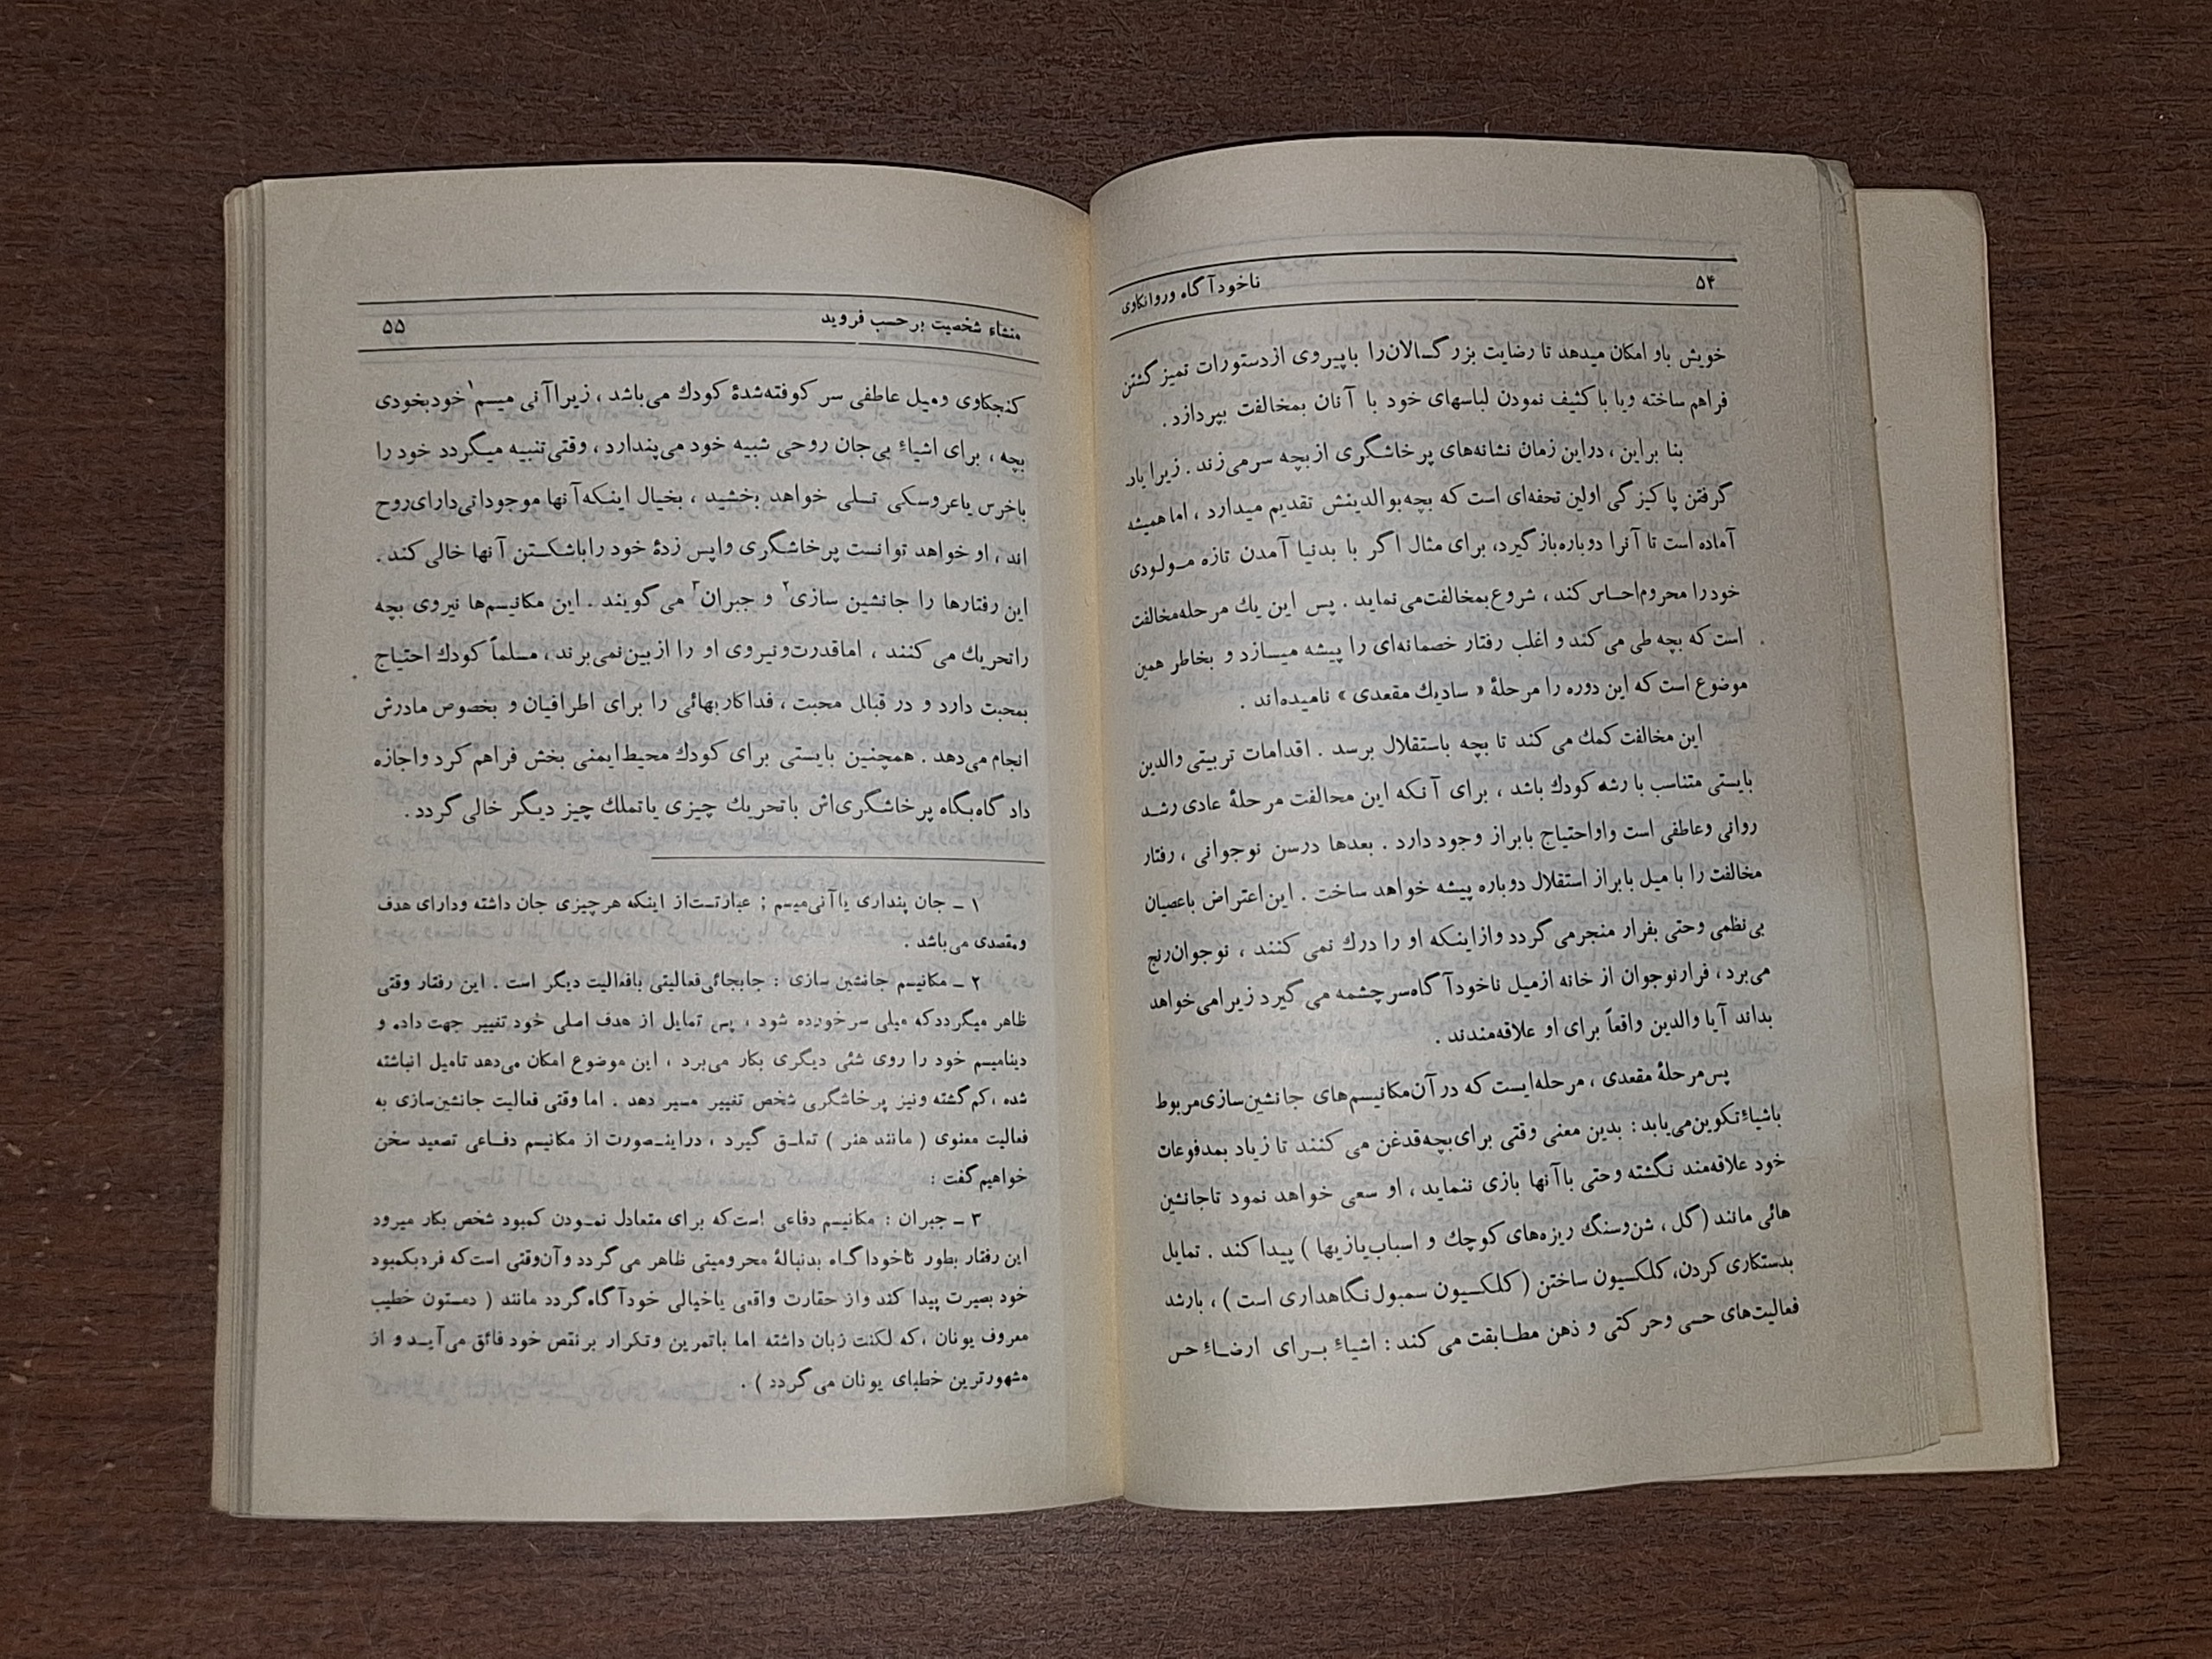 ۵۴ ناخودآگاه وروانکاوی
خویش باو امکان میدهد تا رضایت بزرگسالان‌را باپیروی ازدستورات تمیز گشتن
فراهم ساخته ویا با کثیف نمودن لباسهای خود با آنان بمخالفت بپردازد .
بنا براین ، دراین زمان نشانه‌های پرخاشگری ازبچه سرمی‌زند . زیرا یاد
گرفتن پاکیزگی اولین تحفه‌ای است که بچه بوالدینش تقدیم میدارد ، اما همیشه
آماده است تا آنرا دوباره باز گیرد، برای مثال اگر با بدنیا آمدن تازه مولودی
خود را محروم احساس کند ، شروع بمخالفت می نماید . پس این یك مرحله مخالفت
است که بچه طی می کند و اغلب رفتار خصمانه‌ای را پیشه میسازد و بخاطر همین
موضوع است که این دوره را مرحلهٔ « سادیك مقعدی » نامیده‌اند .
این مخالفت کمك می کند تا بچه باستقلال برسد . اقدامات تربیتی والدین
بایستی متناسب با رشد کودك باشد ، برای آنکه این مخالفت مرحلهٔ عادی رشد
روانی وعاطفی است واواحتیاج بابراز وجود دارد . بعدها درسن نوجوانی ، رفتار
مخالفت را با میل بابراز استقلال دوباره پیشه خواهد ساخت . این اعتراض باعصیان
بی‌نظمی وحتی بفرار منجرمی گردد وازاینکه او را درك نمی کنند ، نوجوان رنج
می‌برد ، فرارنوجوان از خانه ازمیل ناخودآگاه سرچشمه می گیرد زیرا می‌خواهد
بداند آیا والدین واقعاً برای او علاقه‌مندند .
پس مرحلهٔ مقعدی ، مرحله‌ایست که در آن مکانیسم‌های جانشین سازی مربوط
باشیاءتکوین می‌یابد : بدین معنی وقتی برای بچه قدغن می کنند تا زیاد بمدفوعات
خود علاقه‌مند نگشته وحتی با آنها بازی ننماید ، او سعی خواهد نمود تاجانشین
هائی مانند (گل ، شن‌وسنگ ریزه‌های کوچك و اسباب بازیها ) پیدا کند . تمایل
بدستکاری کردن، کلکسیون ساختن ( کلکسیون سمبول نگاهداری است ) ، بارشد
فعالیت‌های حسی وحرکتی و ذهن مطابقت می کند : اشیاء برای ارضاء حس
منشاء شخصیت بر حسب فروید ۵۵
کنجکاوی ومیل عاطفی سر کوفته‌شدهٔ کودك می‌باشد ، زیرا آنی میسم۱ خودبخودی
بچه ، برای اشیاء بی‌جان روحی شبیه خود می‌پندارد ، وقتی تنبیه میگردد خود را
باخرس یاعروسکی تسلی خواهد بخشید ، بخیال اینکه آنها موجوداتی دارای روح
اند ، او خواهد توانست پرخاشگری واپس زدهٔ خود را باشکستن آنها خالی کند .
این رفتارها را جانشین سازی۲ و جبران۳ می گویند . این مکانیسم‌ها نیروی بچه
راتحریك می کنند ، اما قدرت ونیروی او را ازبین نمی‌برند ، مسلماً کودك احتیاج
بمحبت دارد و در قبال محبت ، فداکاریهائی را برای اطرافیان و بخصوص مادرش
انجام می‌دهد . همچنین بایستی برای کودك محیط ایمنی بخش فراهم کرد واجازه
داد گاه‌بگاه پرخاشگری‌اش باتحریك چیزی یاتملك چیز دیگر خالی گردد .
۱ ــ جان پنداری یا آنی‌میسم ; عبارتست‌از اینکه هرچیزی جان داشته ودارای هدف
ومقصدی می‌باشد .
۲ ــ مکانیسم جانشین سازی : جابجائی فعالیتی بافعالیت دیگر است . این رفتار وقتی
ظاهر میگردد که میلی سرخورده شود ، پس تمایل از هدف اصلی خود تغییر جهت داده و
دینامیسم خود را روی شئی دیگری بکار می‌برد ، این موضوع امکان می‌دهد تامیل انباشته
شده ، کم گشته ونیز پرخاشگری شخص تغییر مسیر دهد . اما وقتی فعالیت جانشین‌سازی به
فعالیت معنوی ( مانند هنر ) تعلق گیرد ، دراینصورت از مکانیسم دفاعی تصعید سخن
خواهیم گفت :
۳ ــ جبران : مکانیسم دفاعی است که برای متعادل نمودن کمبود شخص بکار میرود
این رفتار بطور ناخودآگاه بدنبالهٔ محرومیتی ظاهر می گردد و آن وقتی است که فرد بکمبود
خود بصیرت پیدا کند واز حقارت واقعی یاخیالی خودآگاه گردد مانند ( دمستون خطیب
معروف یونان ، که لکنت زبان داشته اما باتمرین وتکرار برنقص خود فائق می‌آید و از
مشهورترین خطبای یونان می گردد ) .